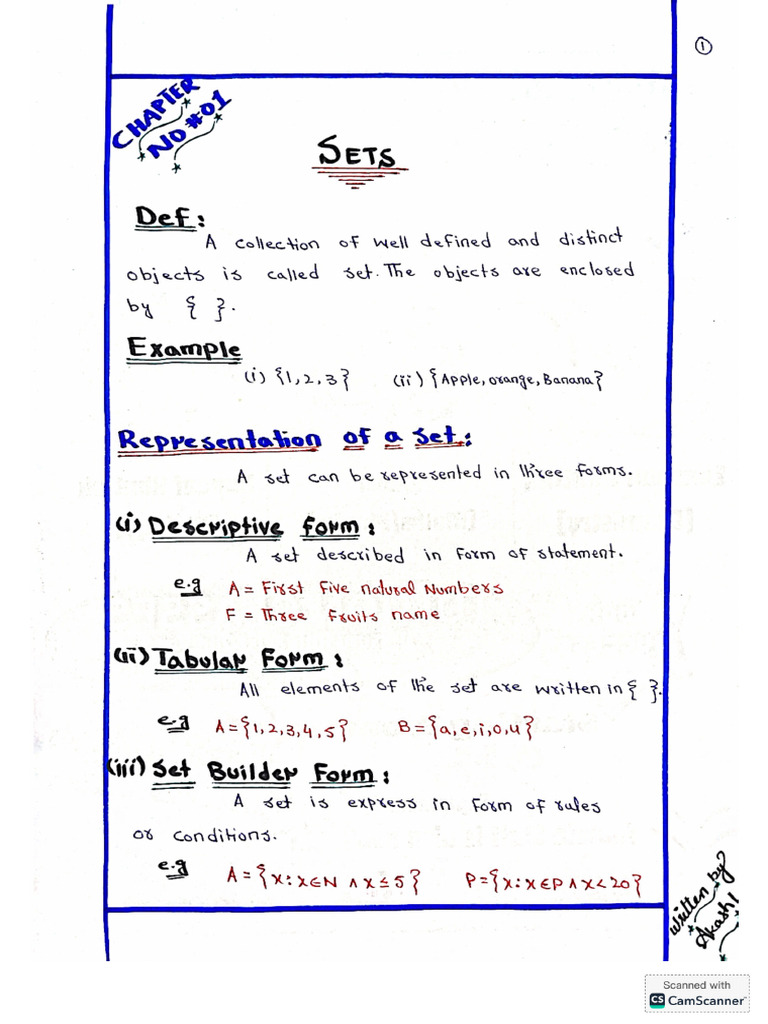 1
CHAPTER
NO #01
SETS
Def:
A collection of well defined and distinct
objects is called set. The objects are enclosed
by { }.
Example
(i) {1,2,3} (ii) {Apple, orange, Banana}
Representation of a Set:
A set can be represented in three forms.
(i) Descriptive form:
A set described in form of statement.
e.g A = First Five natural Numbers
F = Three Fruits name
(ii) Tabular Form:
All elements of the set are written in { }.
e.g A={1,2,3,4,5} B={a,e,i,o,u}
(iii) Set Builder Form:
A set is express in form of rules
or conditions.
e.g A={x:x∈N ∧ x≤5} P={x:x∈P∧x<20}
written by
Akash!
Scanned with
CS CamScanner